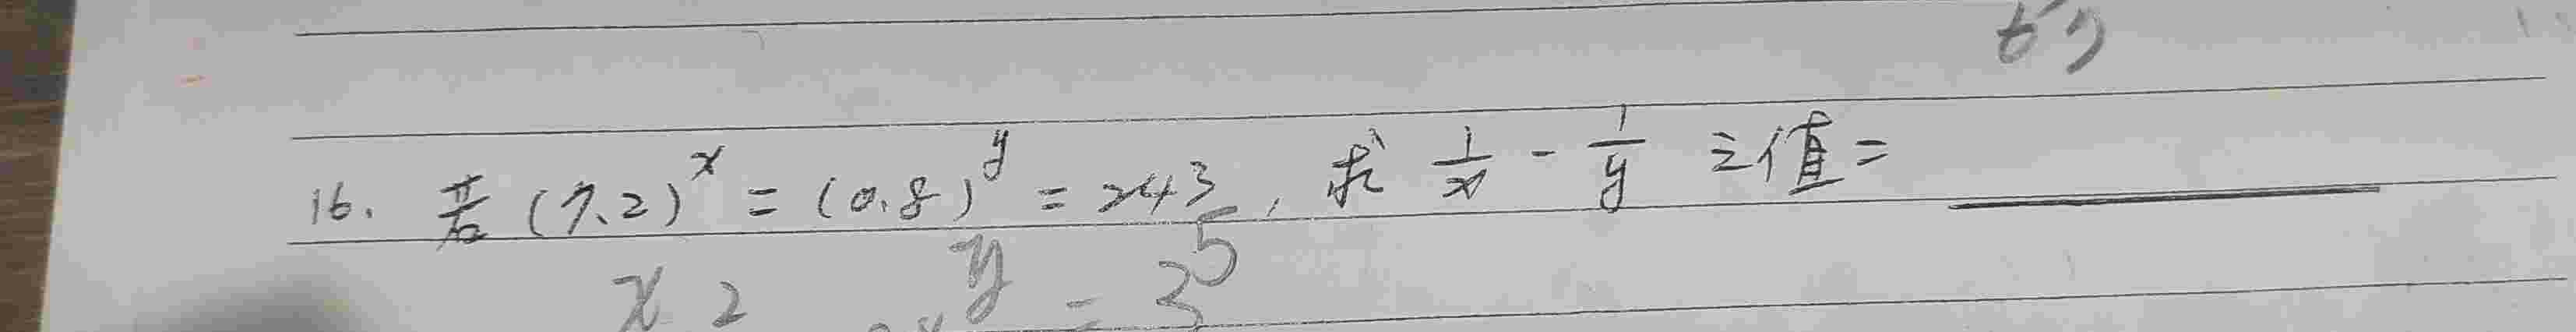 16. 若 (7.2)^x = (0.8)^y = 243, 求 1/x - 1/y 之值 = ______
x 2 y = 3^5